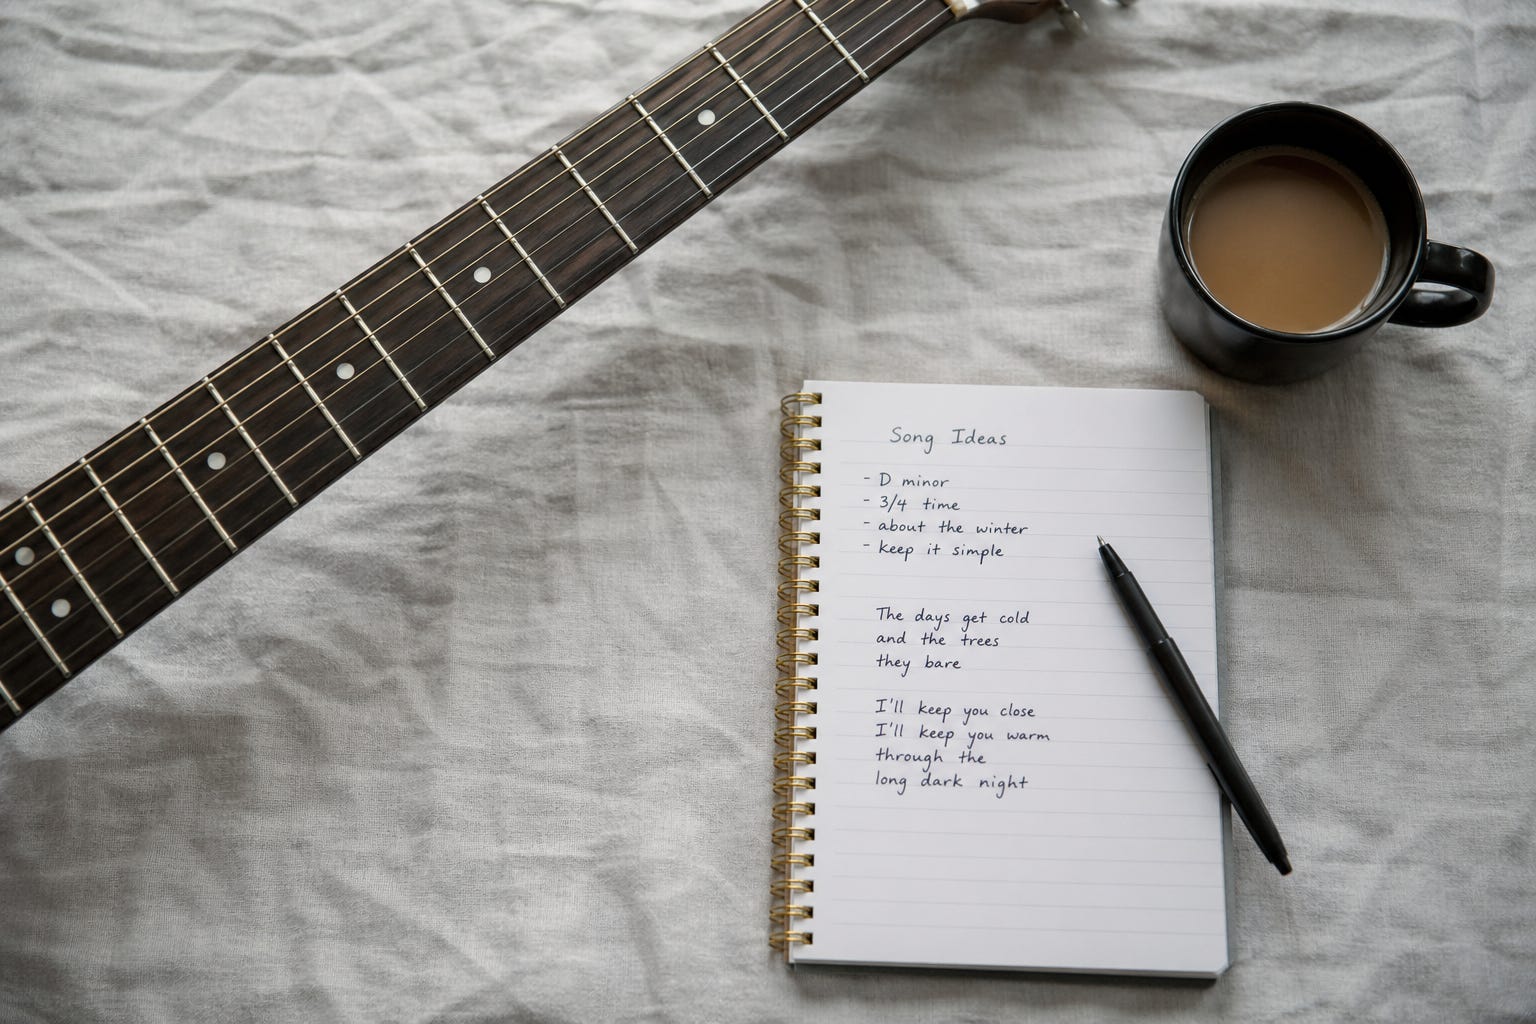 Song Ideas
- D minor
- 3/4 time
- about the winter
- keep it simple
The days get cold
and the trees
they bare
I'll keep you close
I'll keep you warm
through the
long dark night